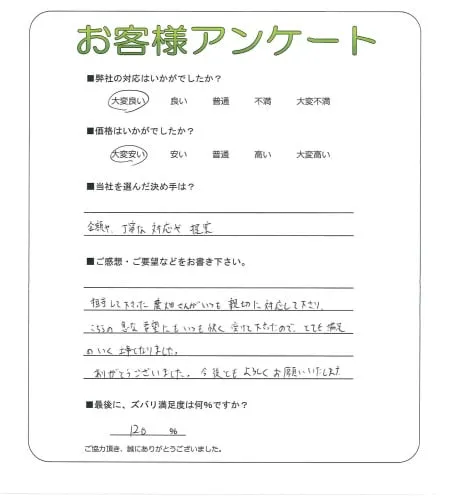 お客様アンケート
■弊社の対応はいかがでしたか？
大変良い 良い 普通 不満 大変不満
■価格はいかがでしたか？
大変安い 安い 普通 高い 大変高い
■当社を選んだ決め手は？
金額や、丁寧な対応や提案
■ご感想・ご要望などをお書き下さい。
担当して下さった さんがいつも親切に対応して下さり、
こちらの急な要望にもいつも快く受けて下さったので、とても満足
のいく工事になりました。
ありがとうございました。今後ともよろしくお願いいたします
■最後に、ズバリ満足度は何%ですか？
120 %
ご協力頂き、誠にありがとうございました。